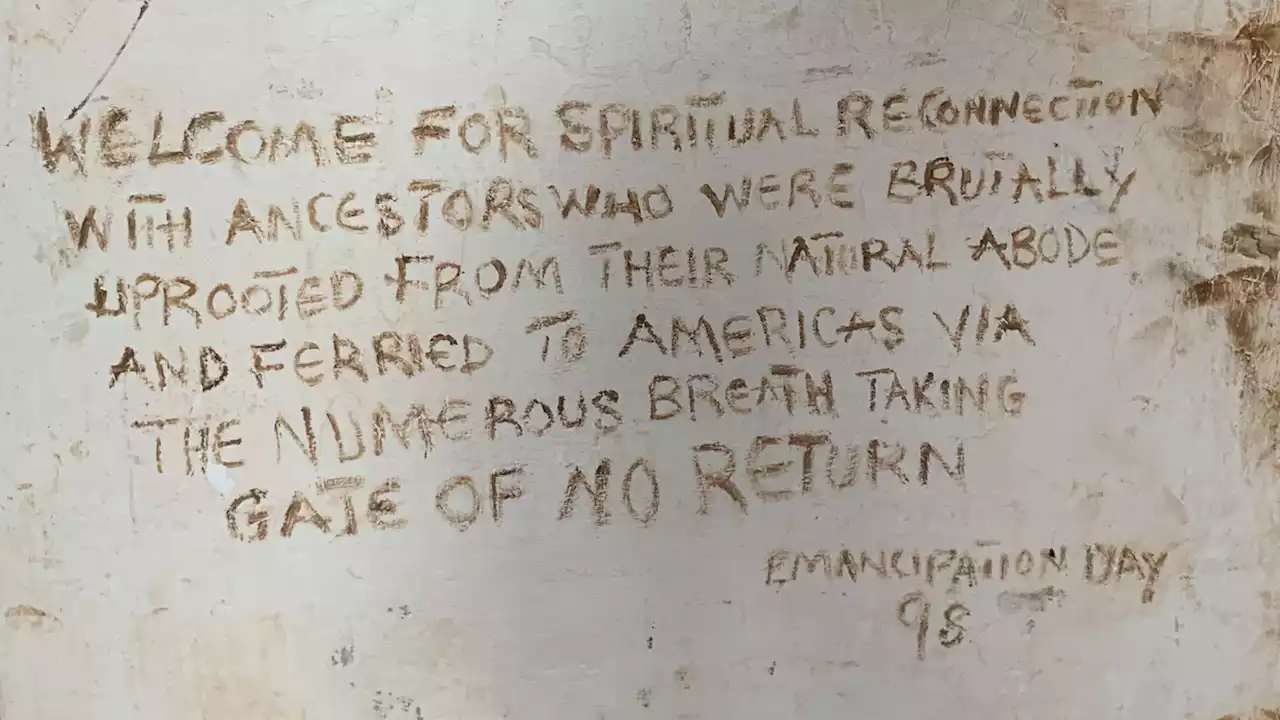 WELCOME FOR SPIRITUAL RECONNECTION
WITH ANCESTORS WHO WERE BRUTALLY
UPROOTED FROM THEIR NATURAL ABODE
AND FERRIED TO AMERICAS VIA
THE NUMEROUS BREATH TAKING
GATE OF NO RETURN
EMANCIPATION DAY
98